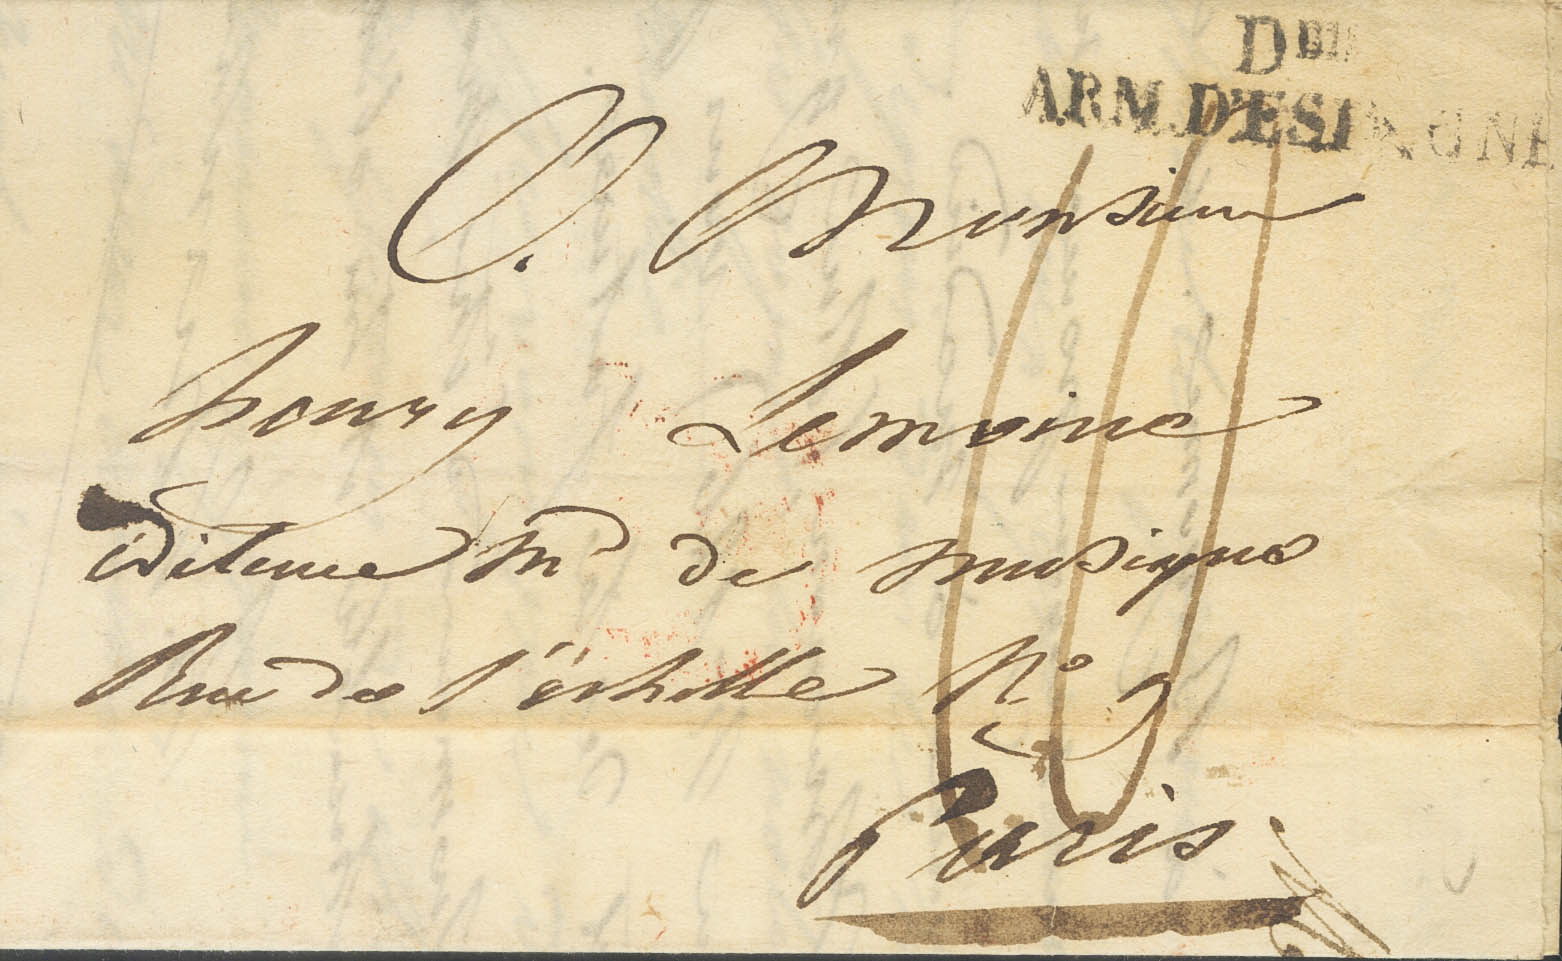 Dᵐ
ARM. D'ESPAGNE
A. Monsieur
henry Lemoine
editeur mᵈ de musique
Rue de l'échelle Nº 9
Paris